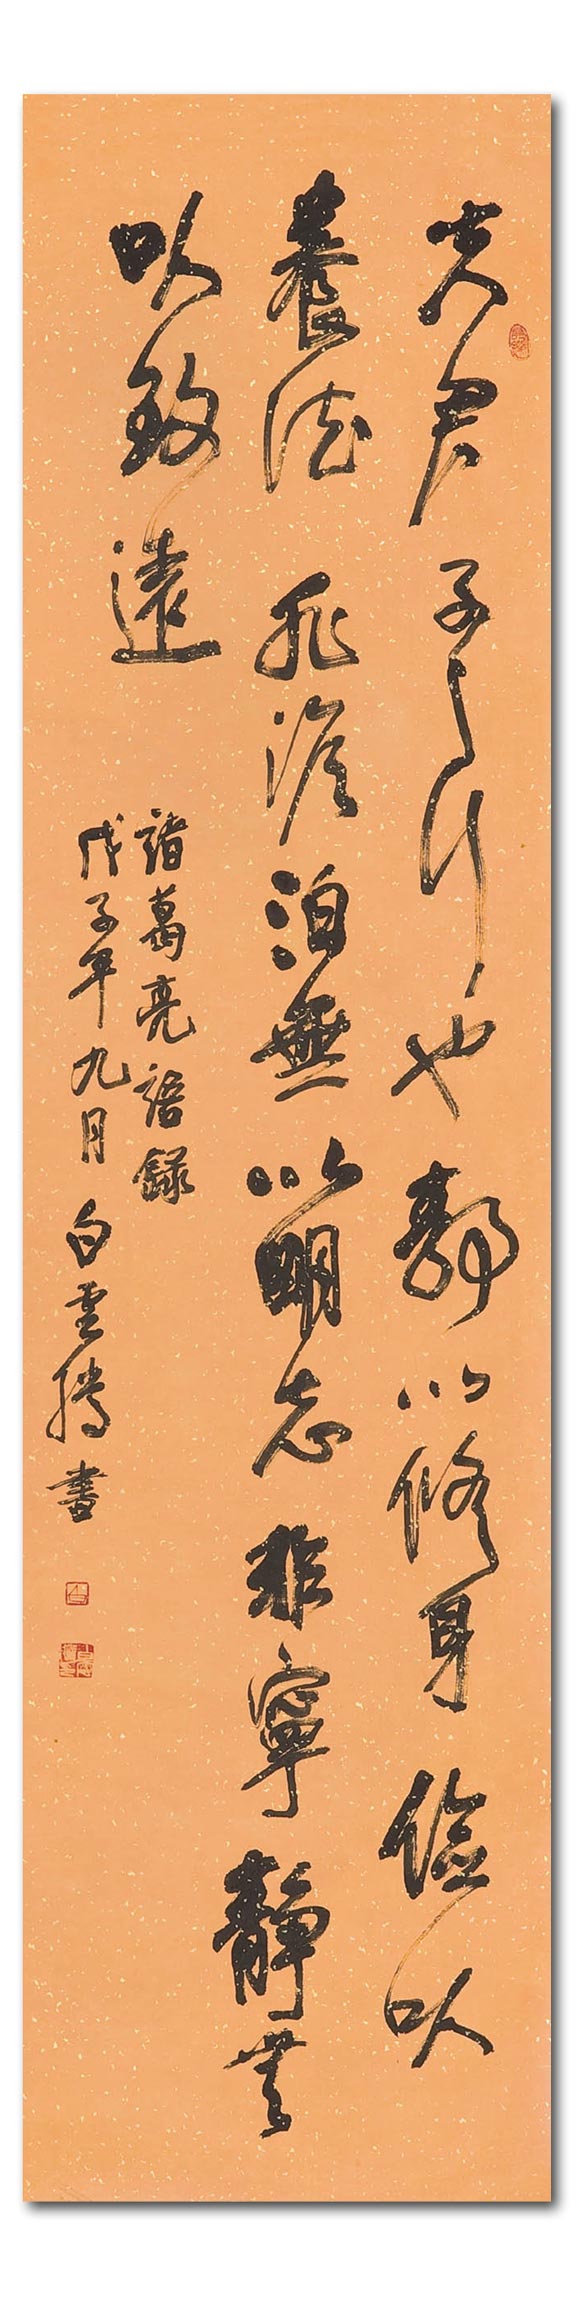 夫君子之行也靜以修身儉以
養德非澹泊無以明志非寧靜無
以致遠
諸葛亮語錄
戊子年九月白雲騰書